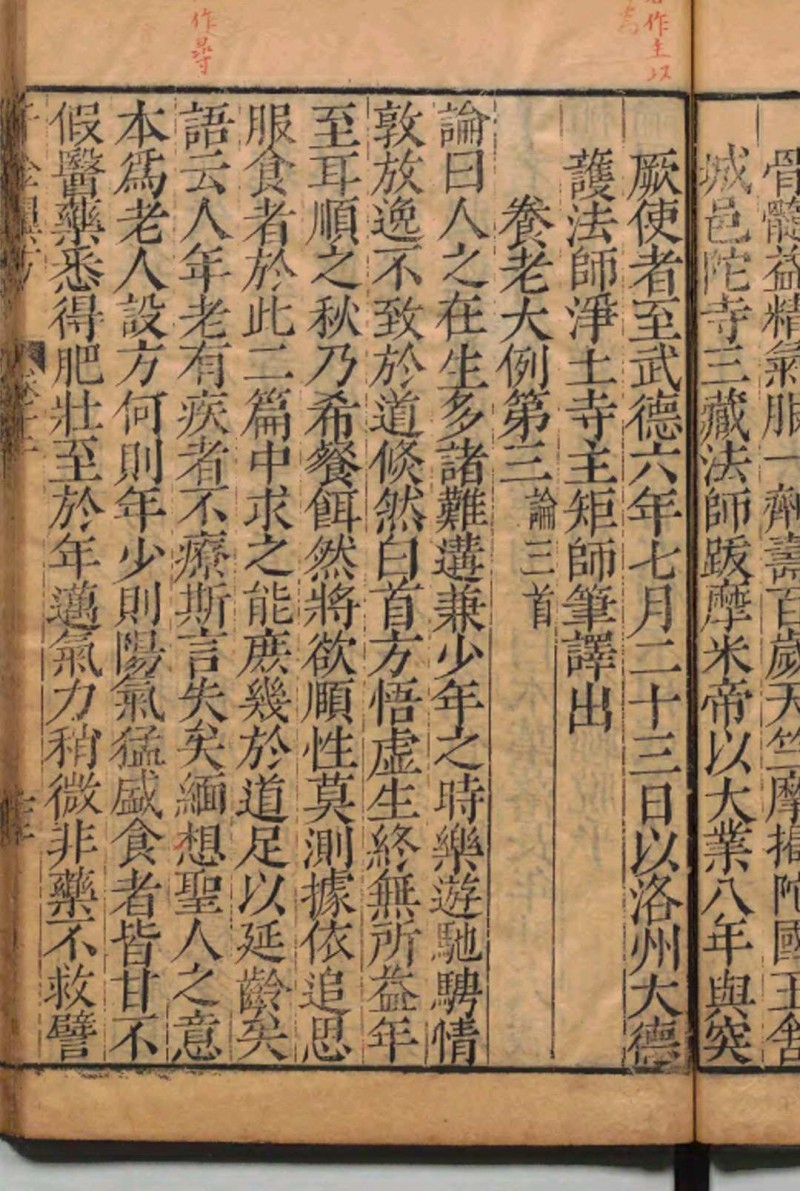 骨髓益精氣服一劑壽百歲天竺摩揭陀國王舍
城邑陀寺三藏法師跋摩米帝以大業八年與突
厥使者至武德六年七月二十三日以洛州大德
護法師淨土寺主矩師筆譯出
養老大例第三論三首
論曰人之在生多諸難遘兼少年之時樂遊馳騁情
敦放逸不致於道倐然白首方悟虛生終無所益年
至耳順之秋乃希餐餌然將欲頤性莫測據依追思
服食者於此二篇中求之能庶幾於道足以延齡矣
語云人年老有疾者不療斯言失矣緬想聖人之意
本為老人設方何則年少則陽氣猛盛食者皆甘不
假醫藥悉得肥壯至於年邁氣力稍微非藥不救譬
作主以
作尋